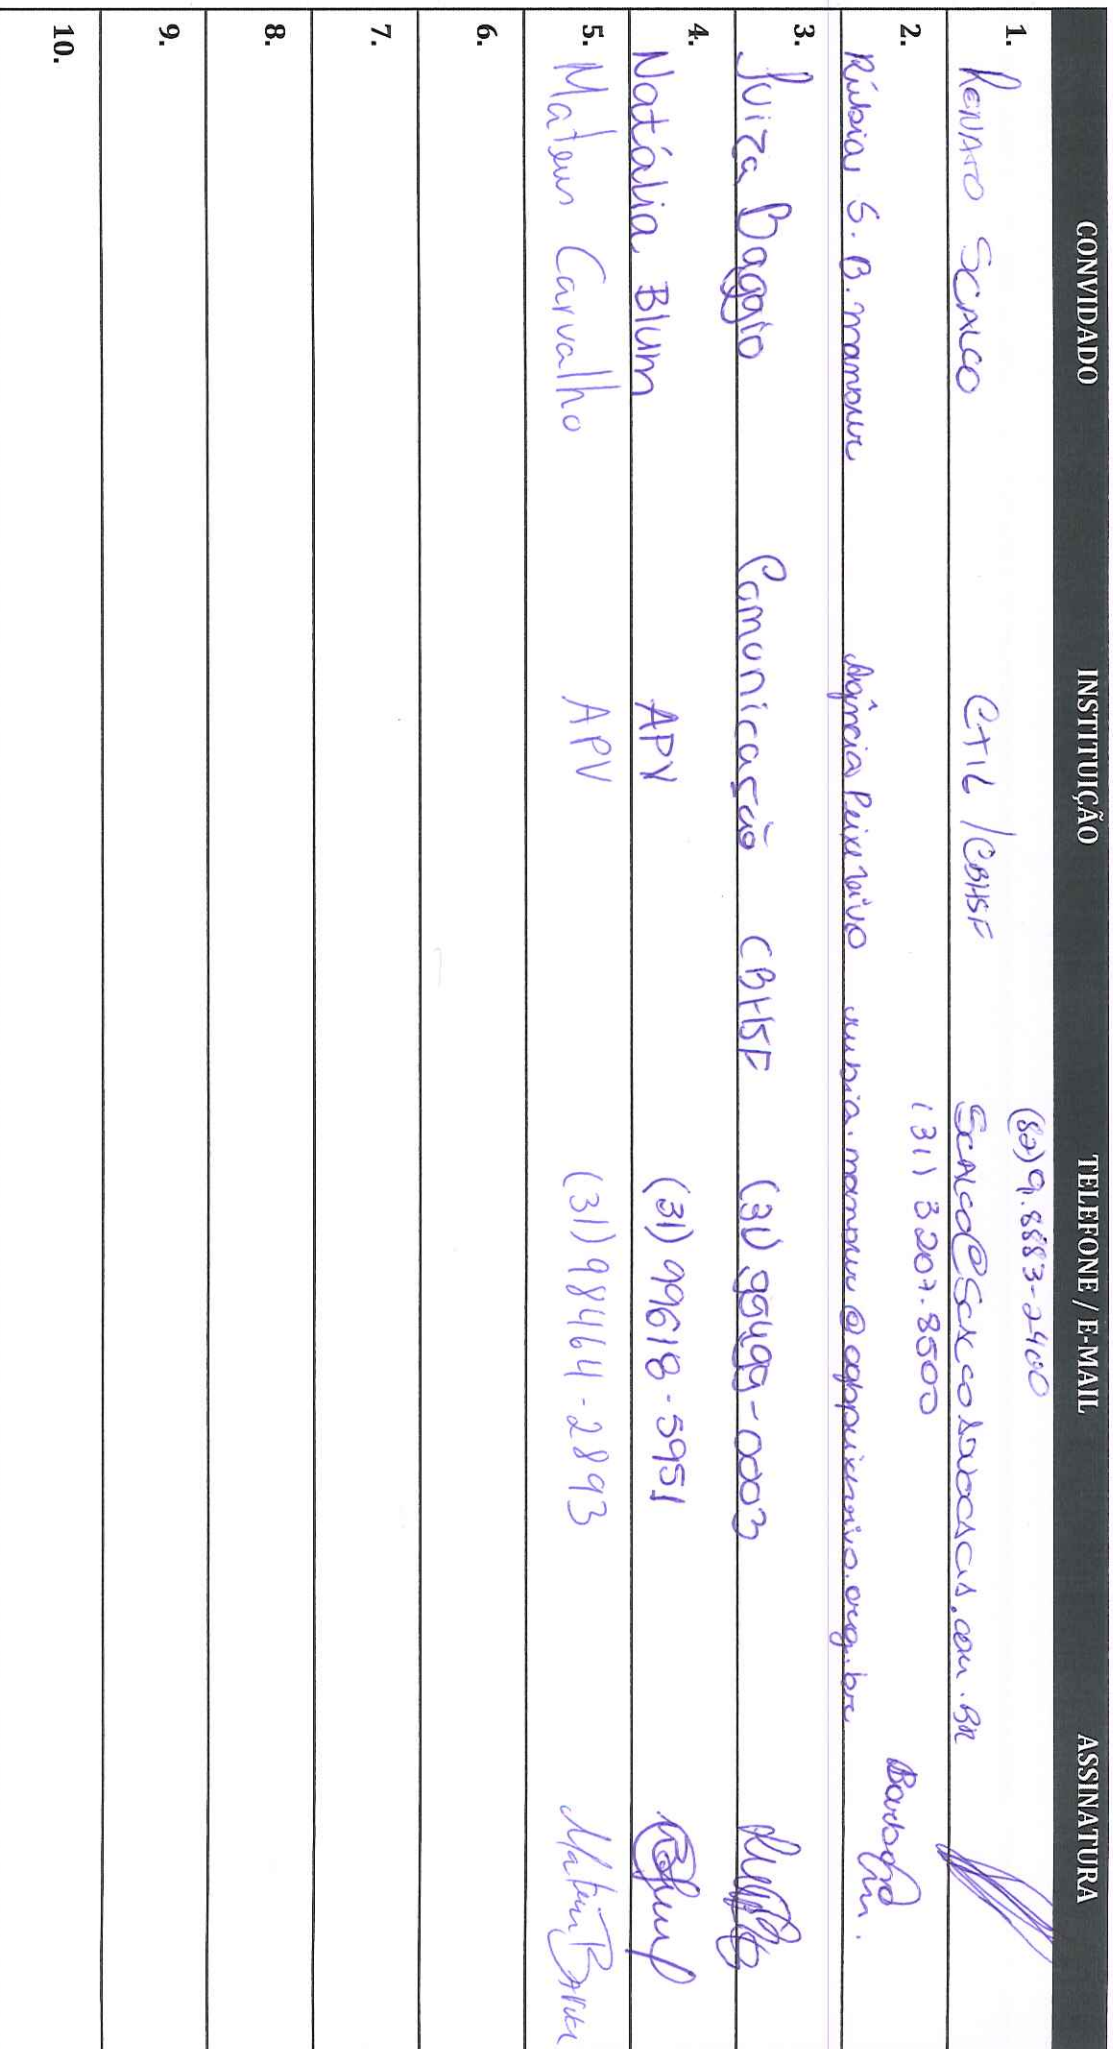 CONVIDADO INSTITUIÇÃO TELEFONE / E-MAIL ASSINATURA
(82) 9.8883-2400
1. RENATO SCALCO CTIL / CBHSF scalco@scalcoadvocacia.com.br
(31) 3207-8500
2. Rúbia S. B. mansur Agência Peixe Vivo rubia.mansur@agpeixevivo.org.br Barbosa
3. Luiza Baggio Comunicação CBHSF (31) 99499-0003
4. Natália Blum APV (31) 99618-5951
5. Mateus Carvalho APV (31) 98464-2893 Mateus
6.
7.
8.
9.
10.